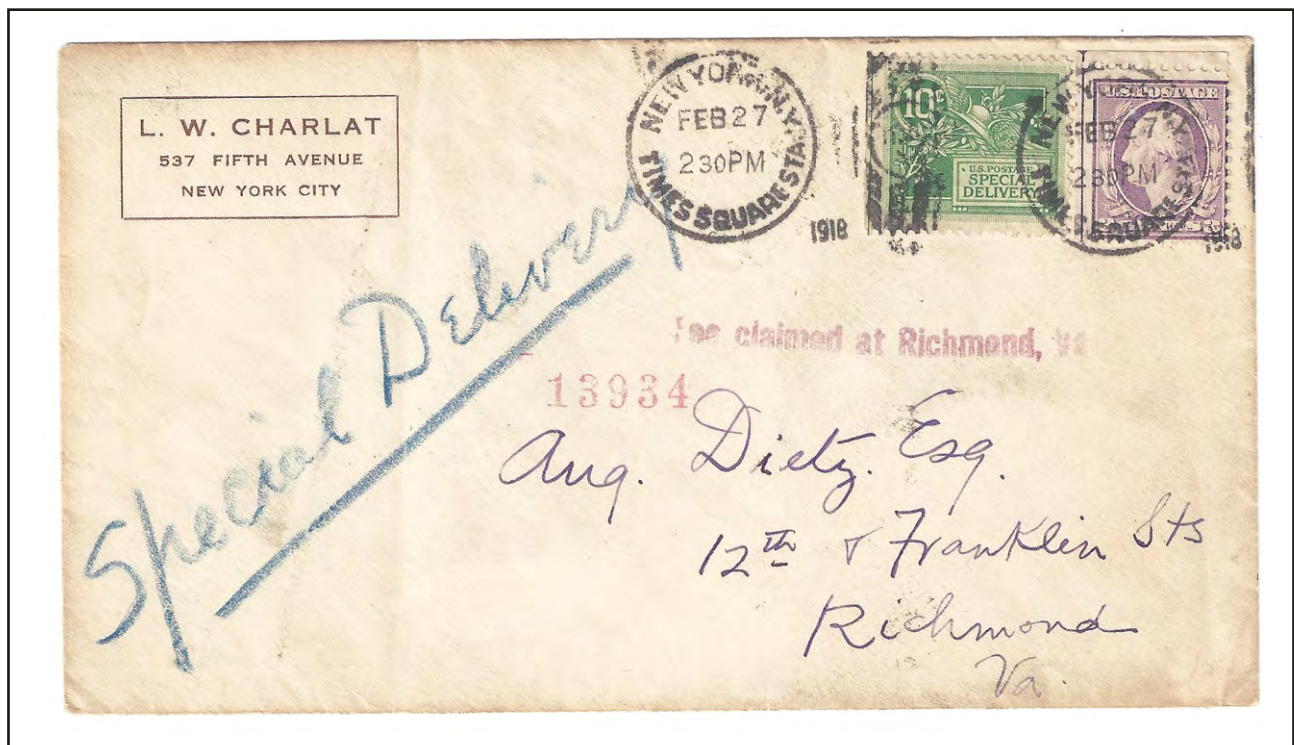 L. W. CHARLAT
537 FIFTH AVENUE
NEW YORK CITY
NEW YORK, N.Y.
FEB 27
2 30 PM
TIMES SQUARE STA.
1918
10c
U.S. POSTAGE
SPECIAL
DELIVERY
U.S. POSTAGE
NEW YORK, N.Y.
FEB 27
2 30 PM
TIMES SQUARE STA.
1918
Special Delivery
Fee claimed at Richmond, Va
13934
Aug. Dietz. Esq.
12th & Franklin Sts
Richmond
Va.